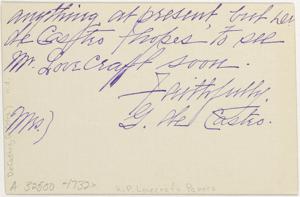 anything at present but her
de Castro "hopes" to see
Mr. Lovecraft soon.
Faithfully,
Mrs) G. de Castro.
A 32600 -1732-
H.P. Lovecraft Papers